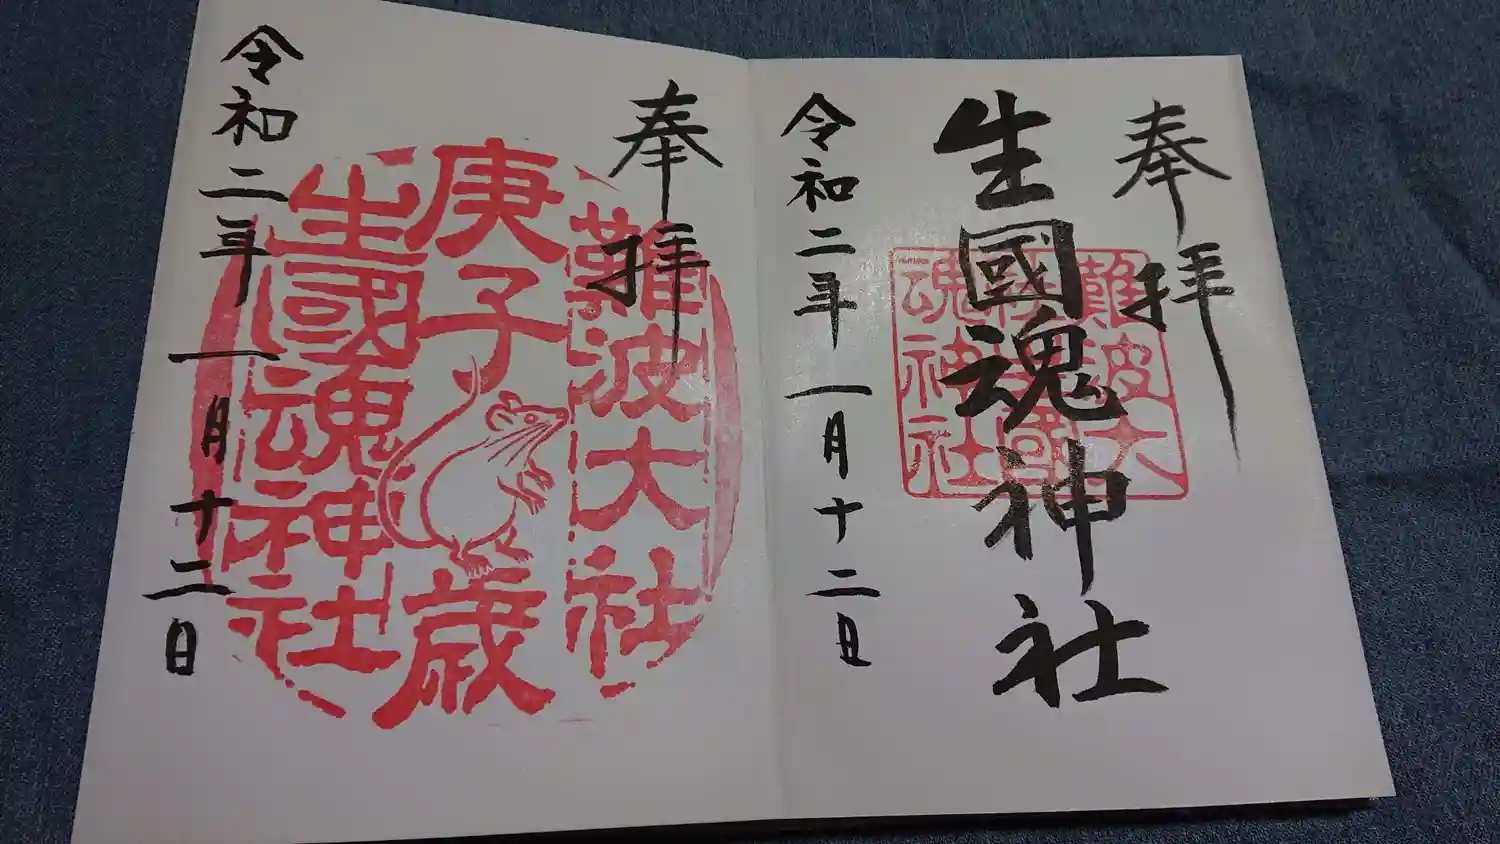 奉拝
生國魂神社
令和二年一月十二日
難波大社
生國
魂神社
奉拝
令和二年一月十二日
難波大社
庚子歳
生國魂神社